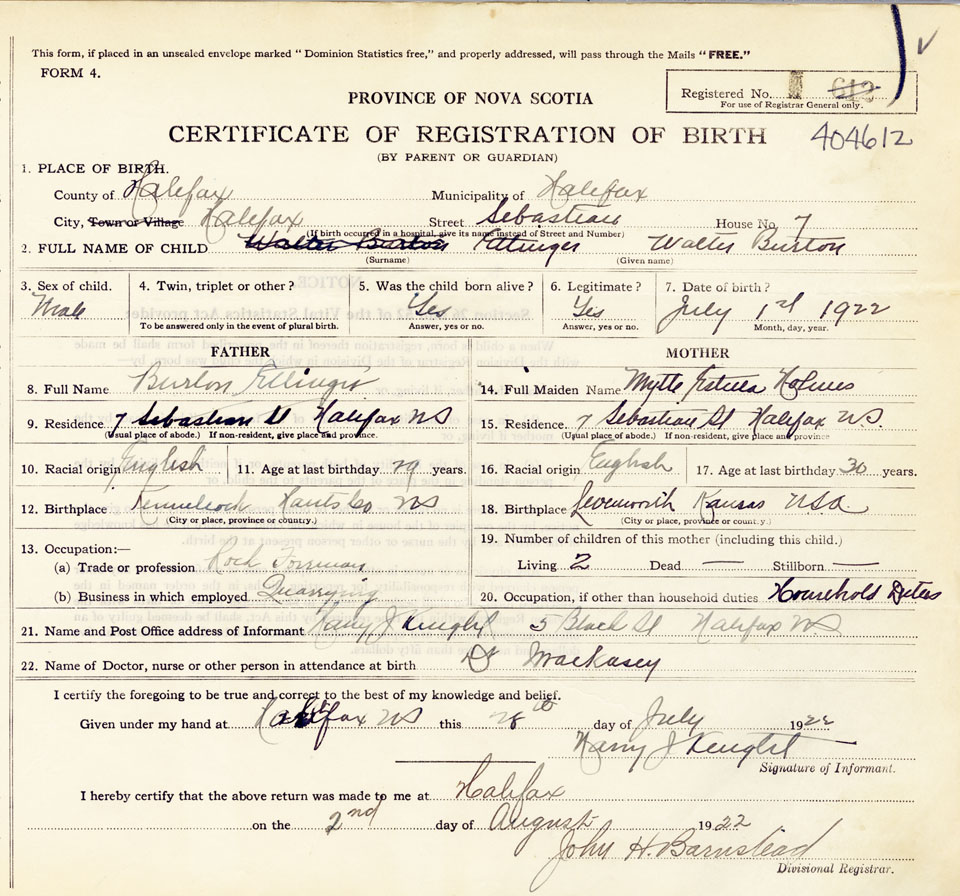 This form, if placed in an unsealed envelope marked "Dominion Statistics free," and properly addressed, will pass through the Mails "FREE."
FORM 4.
Registered No. 612
For use of Registrar General only.
PROVINCE OF NOVA SCOTIA
CERTIFICATE OF REGISTRATION OF BIRTH
404612
(BY PARENT OR GUARDIAN)
1. PLACE OF BIRTH.
County of Halifax Municipality of Halifax
City, Town or Village Halifax Street Sebastian House No. 7
(If birth occurred in a hospital, give its name instead of Street and Number)
2. FULL NAME OF CHILD Walter Burton Ettinger Walter Burton
(Surname) (Given name)
3. Sex of child. 4. Twin, triplet or other? 5. Was the child born alive? 6. Legitimate? 7. Date of birth?
Male Yes Yes July 1st 1922
To be answered only in the event of plural birth. Answer, yes or no. Answer, yes or no. Month, day, year.
FATHER MOTHER
8. Full Name Burton Ettinger 14. Full Maiden Name Holmes
9. Residence 7 Sebastian St Halifax NS 15. Residence 7 Sebastian St Halifax N.S.
(Usual place of abode.) If non-resident, give place and province. (Usual place of abode.) If non-resident, give place and province
10. Racial origin English 11. Age at last birthday 29 years. 16. Racial origin English 17. Age at last birthday 30 years.
12. Birthplace Hants Co NS 18. Birthplace Levenworth Kansas USA
(City or place, province or country.) (City or place, province or country.)
13. Occupation:— 19. Number of children of this mother (including this child.)
(a) Trade or profession Rock Forman Living 2 Dead — Stillborn —
(b) Business in which employed Quarrying 20. Occupation, if other than household duties Household Duties
21. Name and Post Office address of Informant Harry J Knight 5 Black St Halifax NS
22. Name of Doctor, nurse or other person in attendance at birth Dr MacKasey
I certify the foregoing to be true and correct to the best of my knowledge and belief.
Given under my hand at Halifax NS this 28th day of July 1922
Harry J Knight
Signature of Informant.
I hereby certify that the above return was made to me at Halifax
on the 2nd day of August 1922
John H. Barnstead
Divisional Registrar.